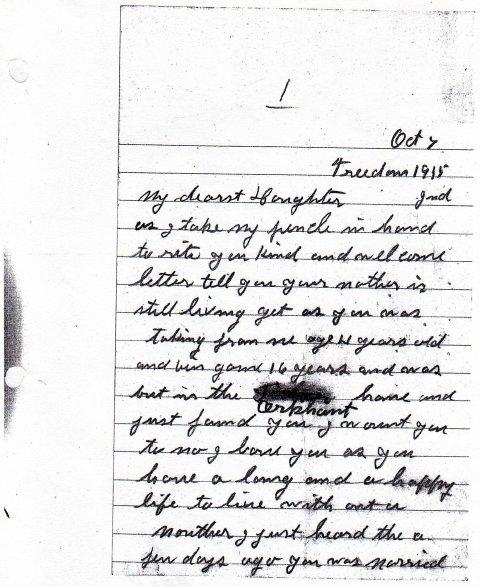 1
Oct 7
Freedom 1915
Ind
My dearst Daughter
as I take my pencle in hand
to rite you kind and wellcome
letter tell you your mother is
still living yet as you was
taking from me age 4 years old
and ben gone 16 years and was
but in the home and
orphant
just found you I wount you
to no I love you as you
have a long and a happy
life to live with out a
mouther I just heard the a
few days ago you was married